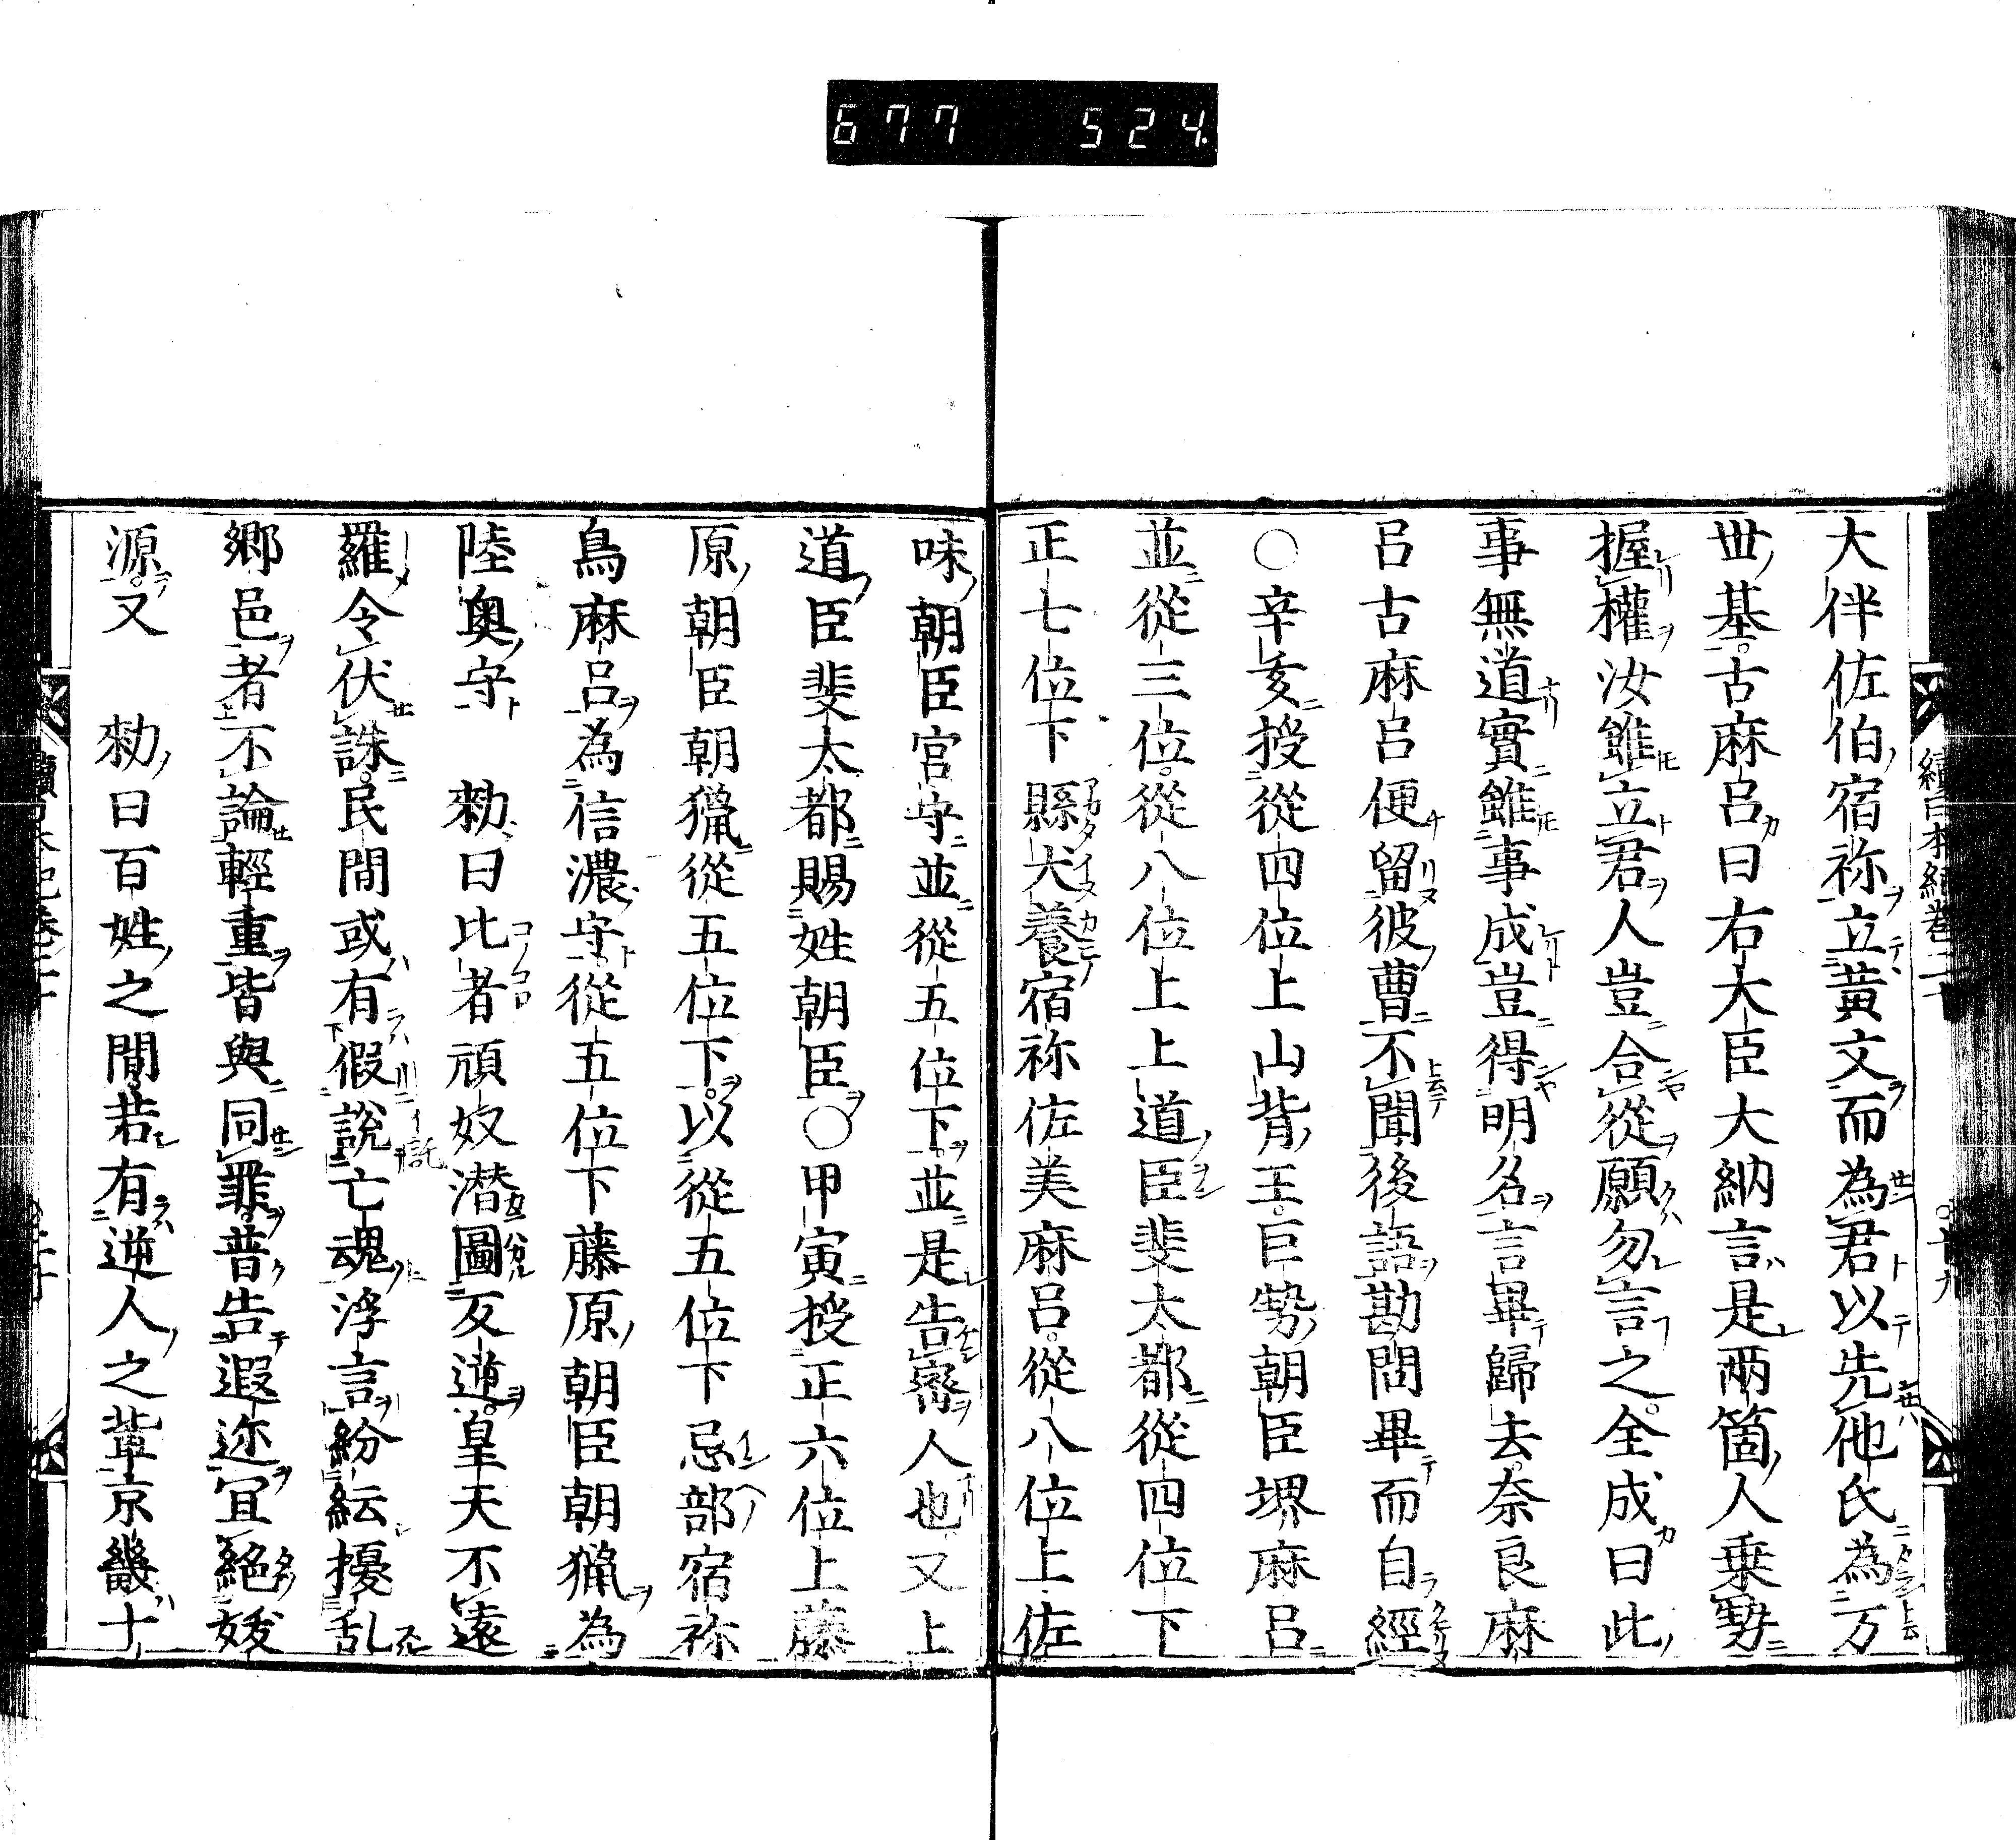 677 524
續日本紀卷二十 十九
大伴佐伯宿祢立黃文而為君以先他氏為万
丗基古麻呂曰右大臣大納言是兩箇人乗勢
握權汝雖立君人豈合從願勿言之全成曰此
事無道實雖事成豈得明名言畢歸去奈良麻
呂古麻呂便留彼曹不聞後語勘問畢而自經
○辛亥授從四位上山背王巨勢朝臣堺麻呂
並從三位從八位上上道臣斐太都從四位下
正七位下縣犬養宿祢佐美麻呂從八位上佐
味朝臣宮守並從五位下並是告密人也又上
道臣斐太都賜姓朝臣○甲寅授正六位上藤
原朝臣朝獵從五位下以從五位下忌部宿祢
鳥麻呂為信濃守從五位下藤原朝臣朝獵為
陸奧守　勑曰比者頑奴潜圖反逆皇天不遠
羅令伏誅民間或有假說亡魂浮言紛紜擾乱
鄉邑者不論輕重皆與同罪普告遐迩冝絕妖
源又　勑曰百姓之間若有逆人之輩京畿十